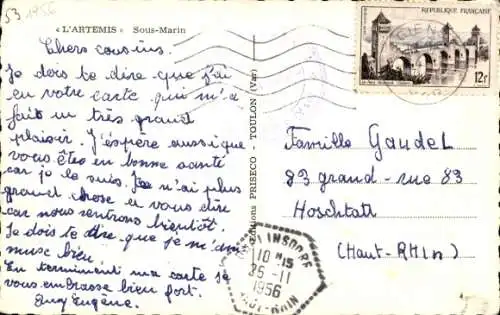 53 1956
« L'ARTEMIS » Sous-Marin
Chers cousins.
Je dois te dire que j'ai
eu votre carte qui m'a
fait un très grand
plaisir. J'espère aussi que
vous êtes en bonne santé
car je le suis. Je n'ai plus
grand chose a vous dire
car nous rentrons bientôt.
Je dois te dire que je m'am
muse bien.
En terminant ma carte je
vous embrasse bien fort.
Eugène.
Editions PRISECO - TOULON (Var)
REPUBLIQUE FRANÇAISE
12f
Famille Gaudel
83 grand-rue 83
Hoschtatt
(Haut-Rhin)
10 H15
26-11
1956
HAUT-RHIN